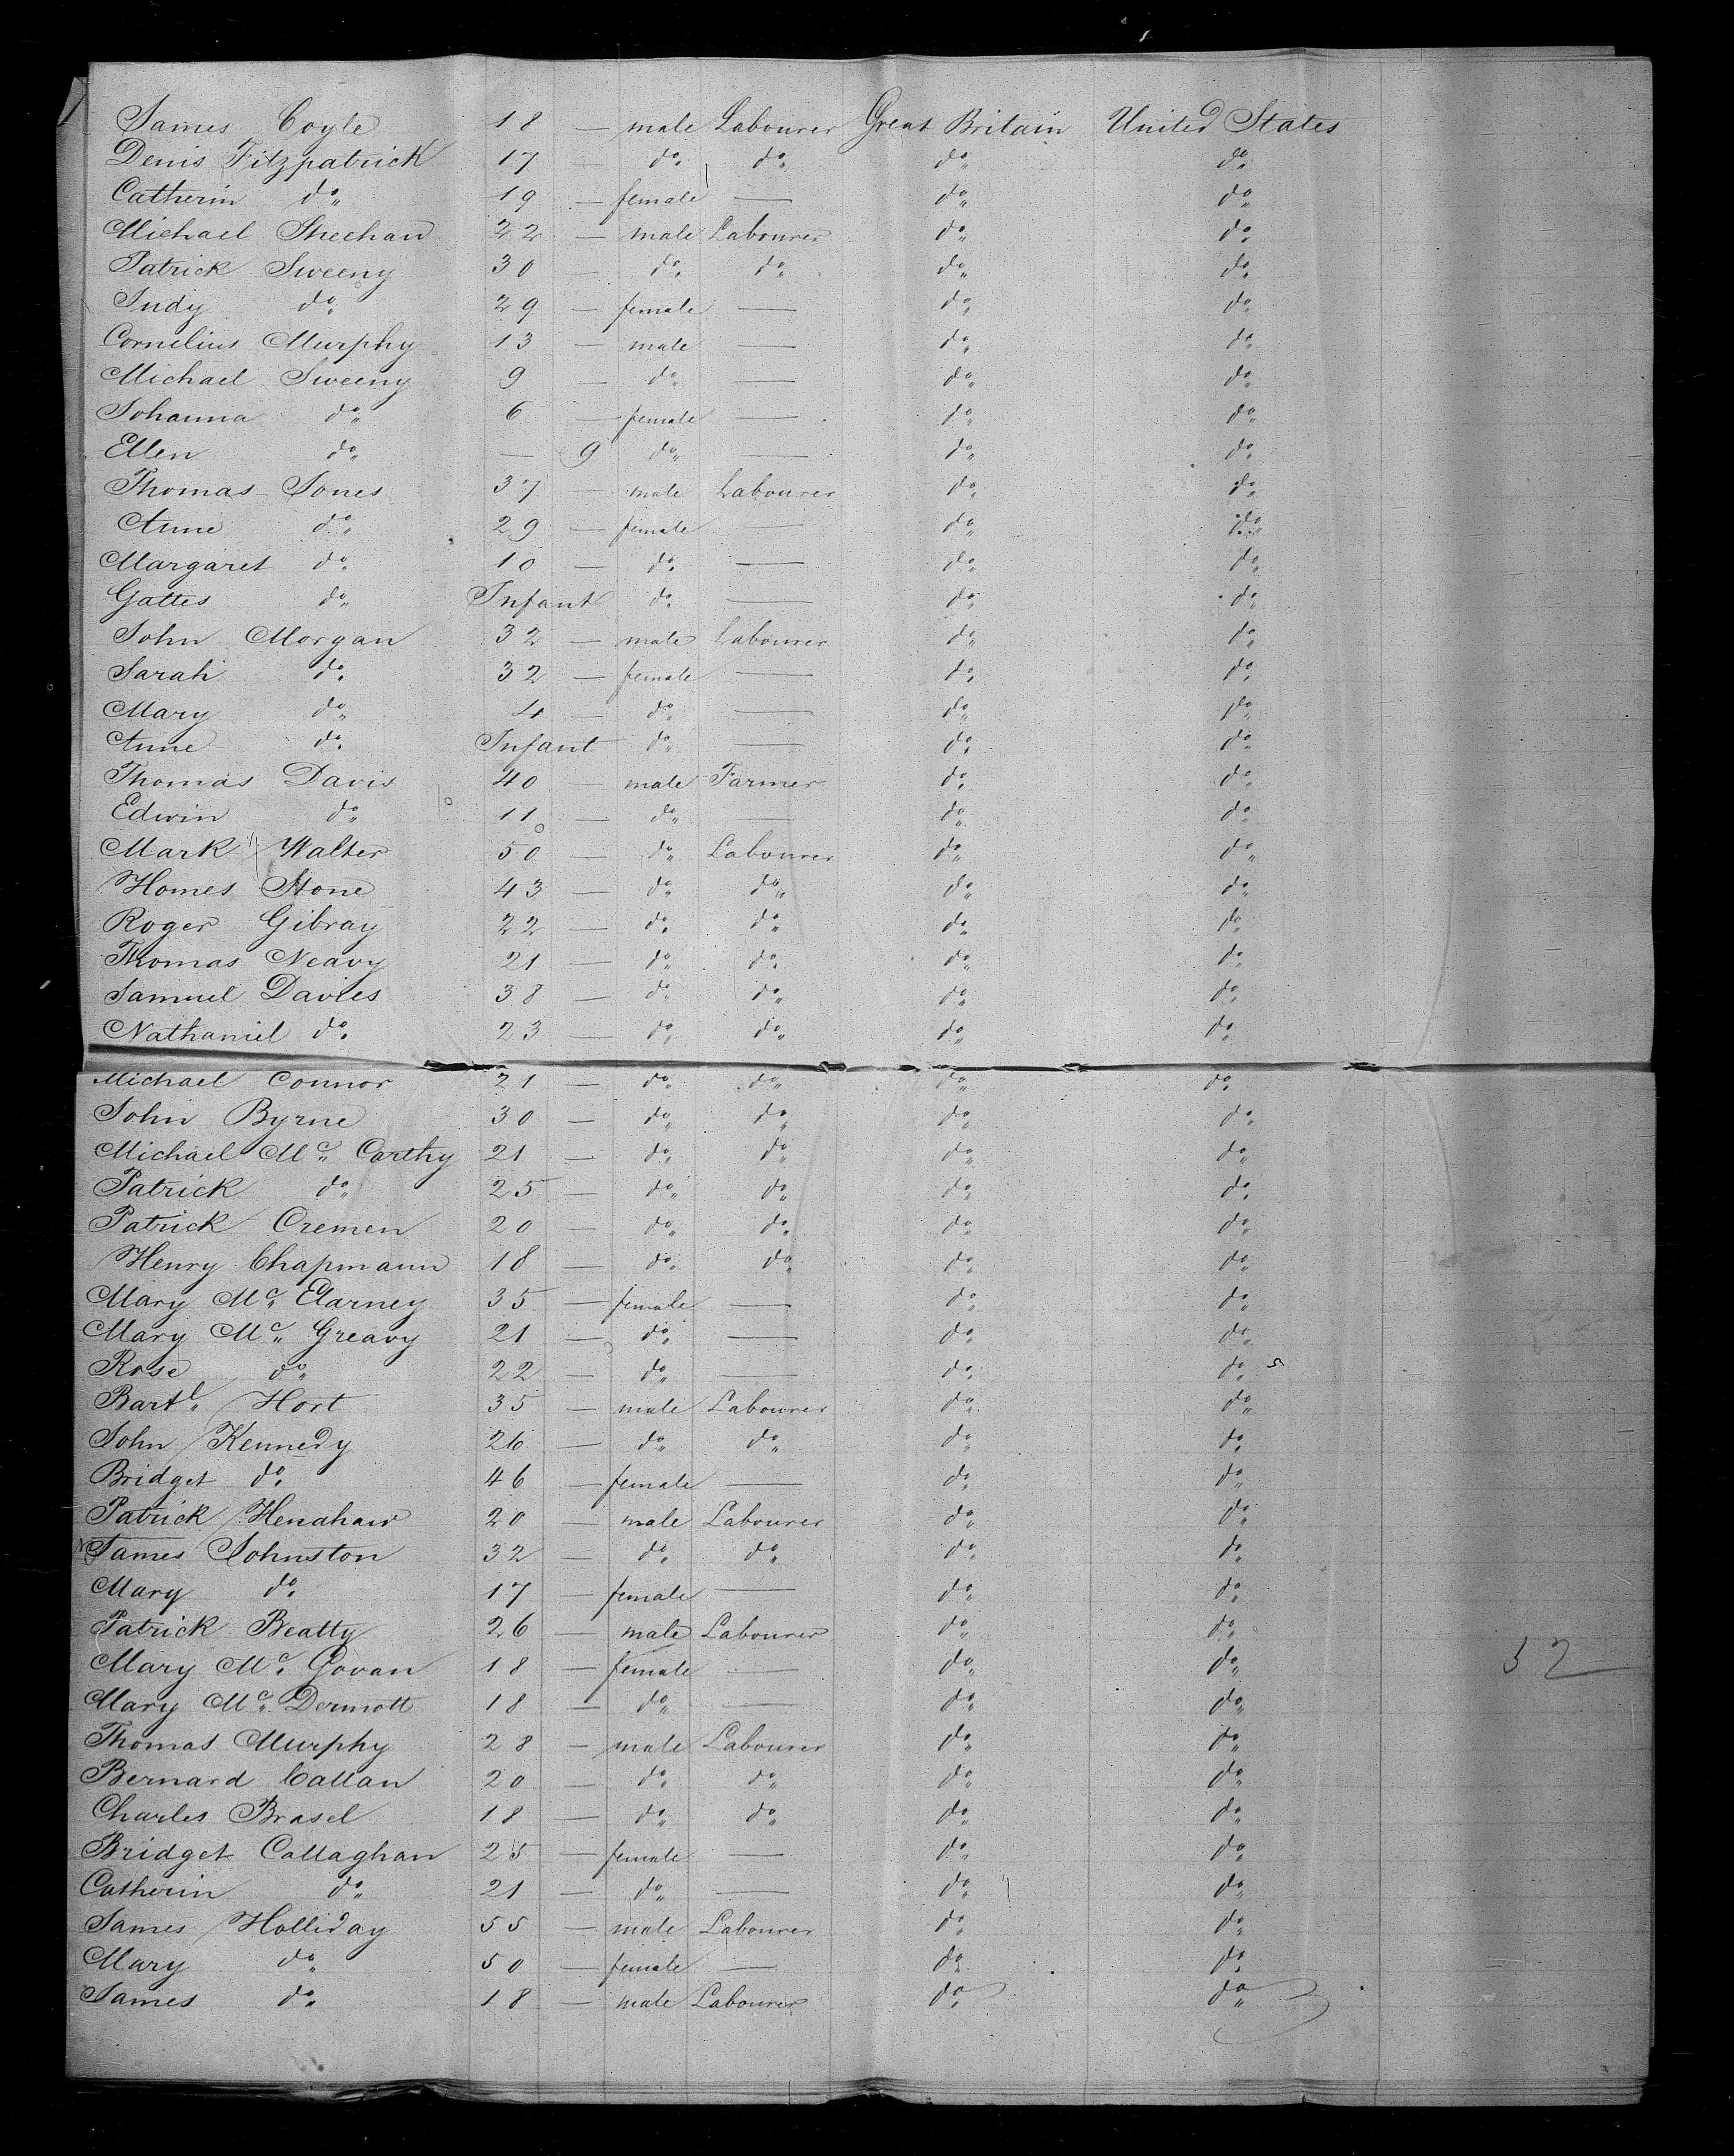 James Coyle 18 — male Labourer Great Britain United States
Denis Fitzpatrick 17 do do do do
Catherin do 19 — female — do do
Michael Sheehan 22 — male Labourer do do
Patrick Sweeny 30 — do do do do
Judy do 29 — female — do do
Cornelius Murphy 13 — male — do do
Michael Sweeny 9 — do — do do
Johanna do 6 — female — do do
Ellen do — 9 do — do do
Thomas Jones 37 — male Labourer do do
Anne do 29 — female — do do
Margaret do 10 — do — do do
Gattes do Infant do — do do
John Morgan 32 — male Labourer do do
Sarah do 32 — female — do do
Mary do 4 — do — do do
Anne do Infant do — do do
Thomas Davis 40 — male Farmer do do
Edwin do 11 — do — do do
Mark Walter 50 — do Labourer do do
Homes Stone 43 — do do do do
Roger Gibray 22 — do do do do
Thomas Neavy 21 — do do do do
Samuel Davies 38 — do do do do
Nathaniel do 23 — do do do do
Michael Connor 21 — do do do do
John Byrne 30 — do do do do
Michael Mc Carthy 21 — do do do do
Patrick do 25 — do do do do
Patrick Cremen 20 — do do do do
Henry Chapmann 18 — do do do do
Mary Mc Elarney 35 — female — do do
Mary Mc Greavy 21 — do — do do
Rose do 22 — do — do do
Bartl Hort 35 — male Labourer do do
John Kennedy 26 — do do do do
Bridget do 46 — female — do do
Patrick Henahaw 20 — male Labourer do do
James Johnston 32 — do do do do
Mary do 17 — female — do do
Patrick Beatty 26 — male Labourer do do
Mary Mc Govan 18 — female — do do 52
Mary Mc Dermott 18 — do — do do
Thomas Murphy 28 — male Labourer do do
Bernard Callan 20 — do do do do
Charles Brasel 18 — do do do do
Bridget Callaghan 25 — female — do do
Catherin do 21 — do — do do
James Holliday 55 — male Labourer do do
Mary do 50 — female — do do
James do 18 — male Labourer do do